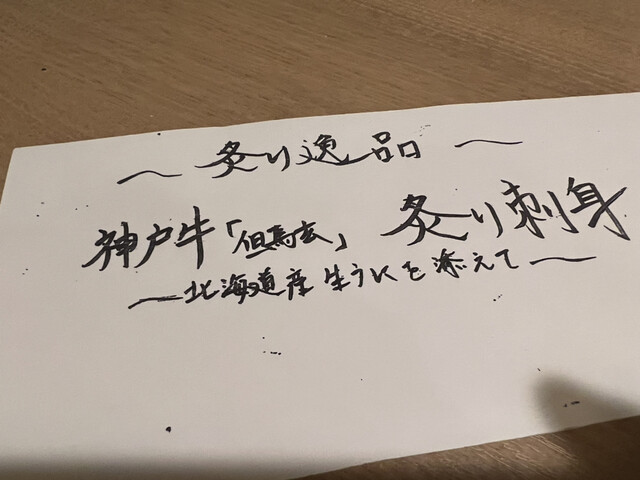 〜 炙り逸品 〜
神戸牛「但馬玄」 炙り刺身
〜北海道産生うにを添えて〜